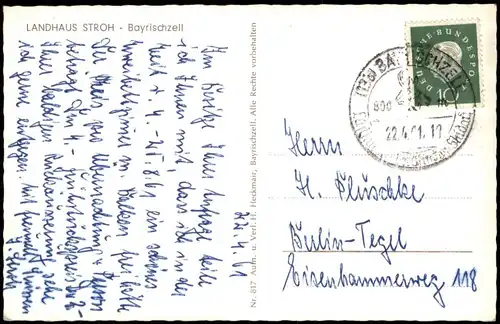 LANDHAUS STROH - Bayrischzell
22.4.61
Im Besitze Ihrer Anfrage teile
ich Ihnen mit, daß ich in der
Zeit v. 4. - 25.8.61 ein schönes
Zweibettzimmer m. Balkon frei hätte
Der Preis pro Übernachtung u. Person
beträgt DM 4.-
Ihrer baldigen sehe
ich gerne entgegen. Mit freundl. Grüssen
Nr. 817 Aufn. u. Verl. H. Heckmair, Bayrischzell. Alle Rechte vorbehalten
DEUTSCHE BUNDESPOST
10
(13b) BAYRISCHZELL
800
22.4.61.19
Herrn
H. Plüschke
Berlin-Tegel
Eisenhammerweg 118